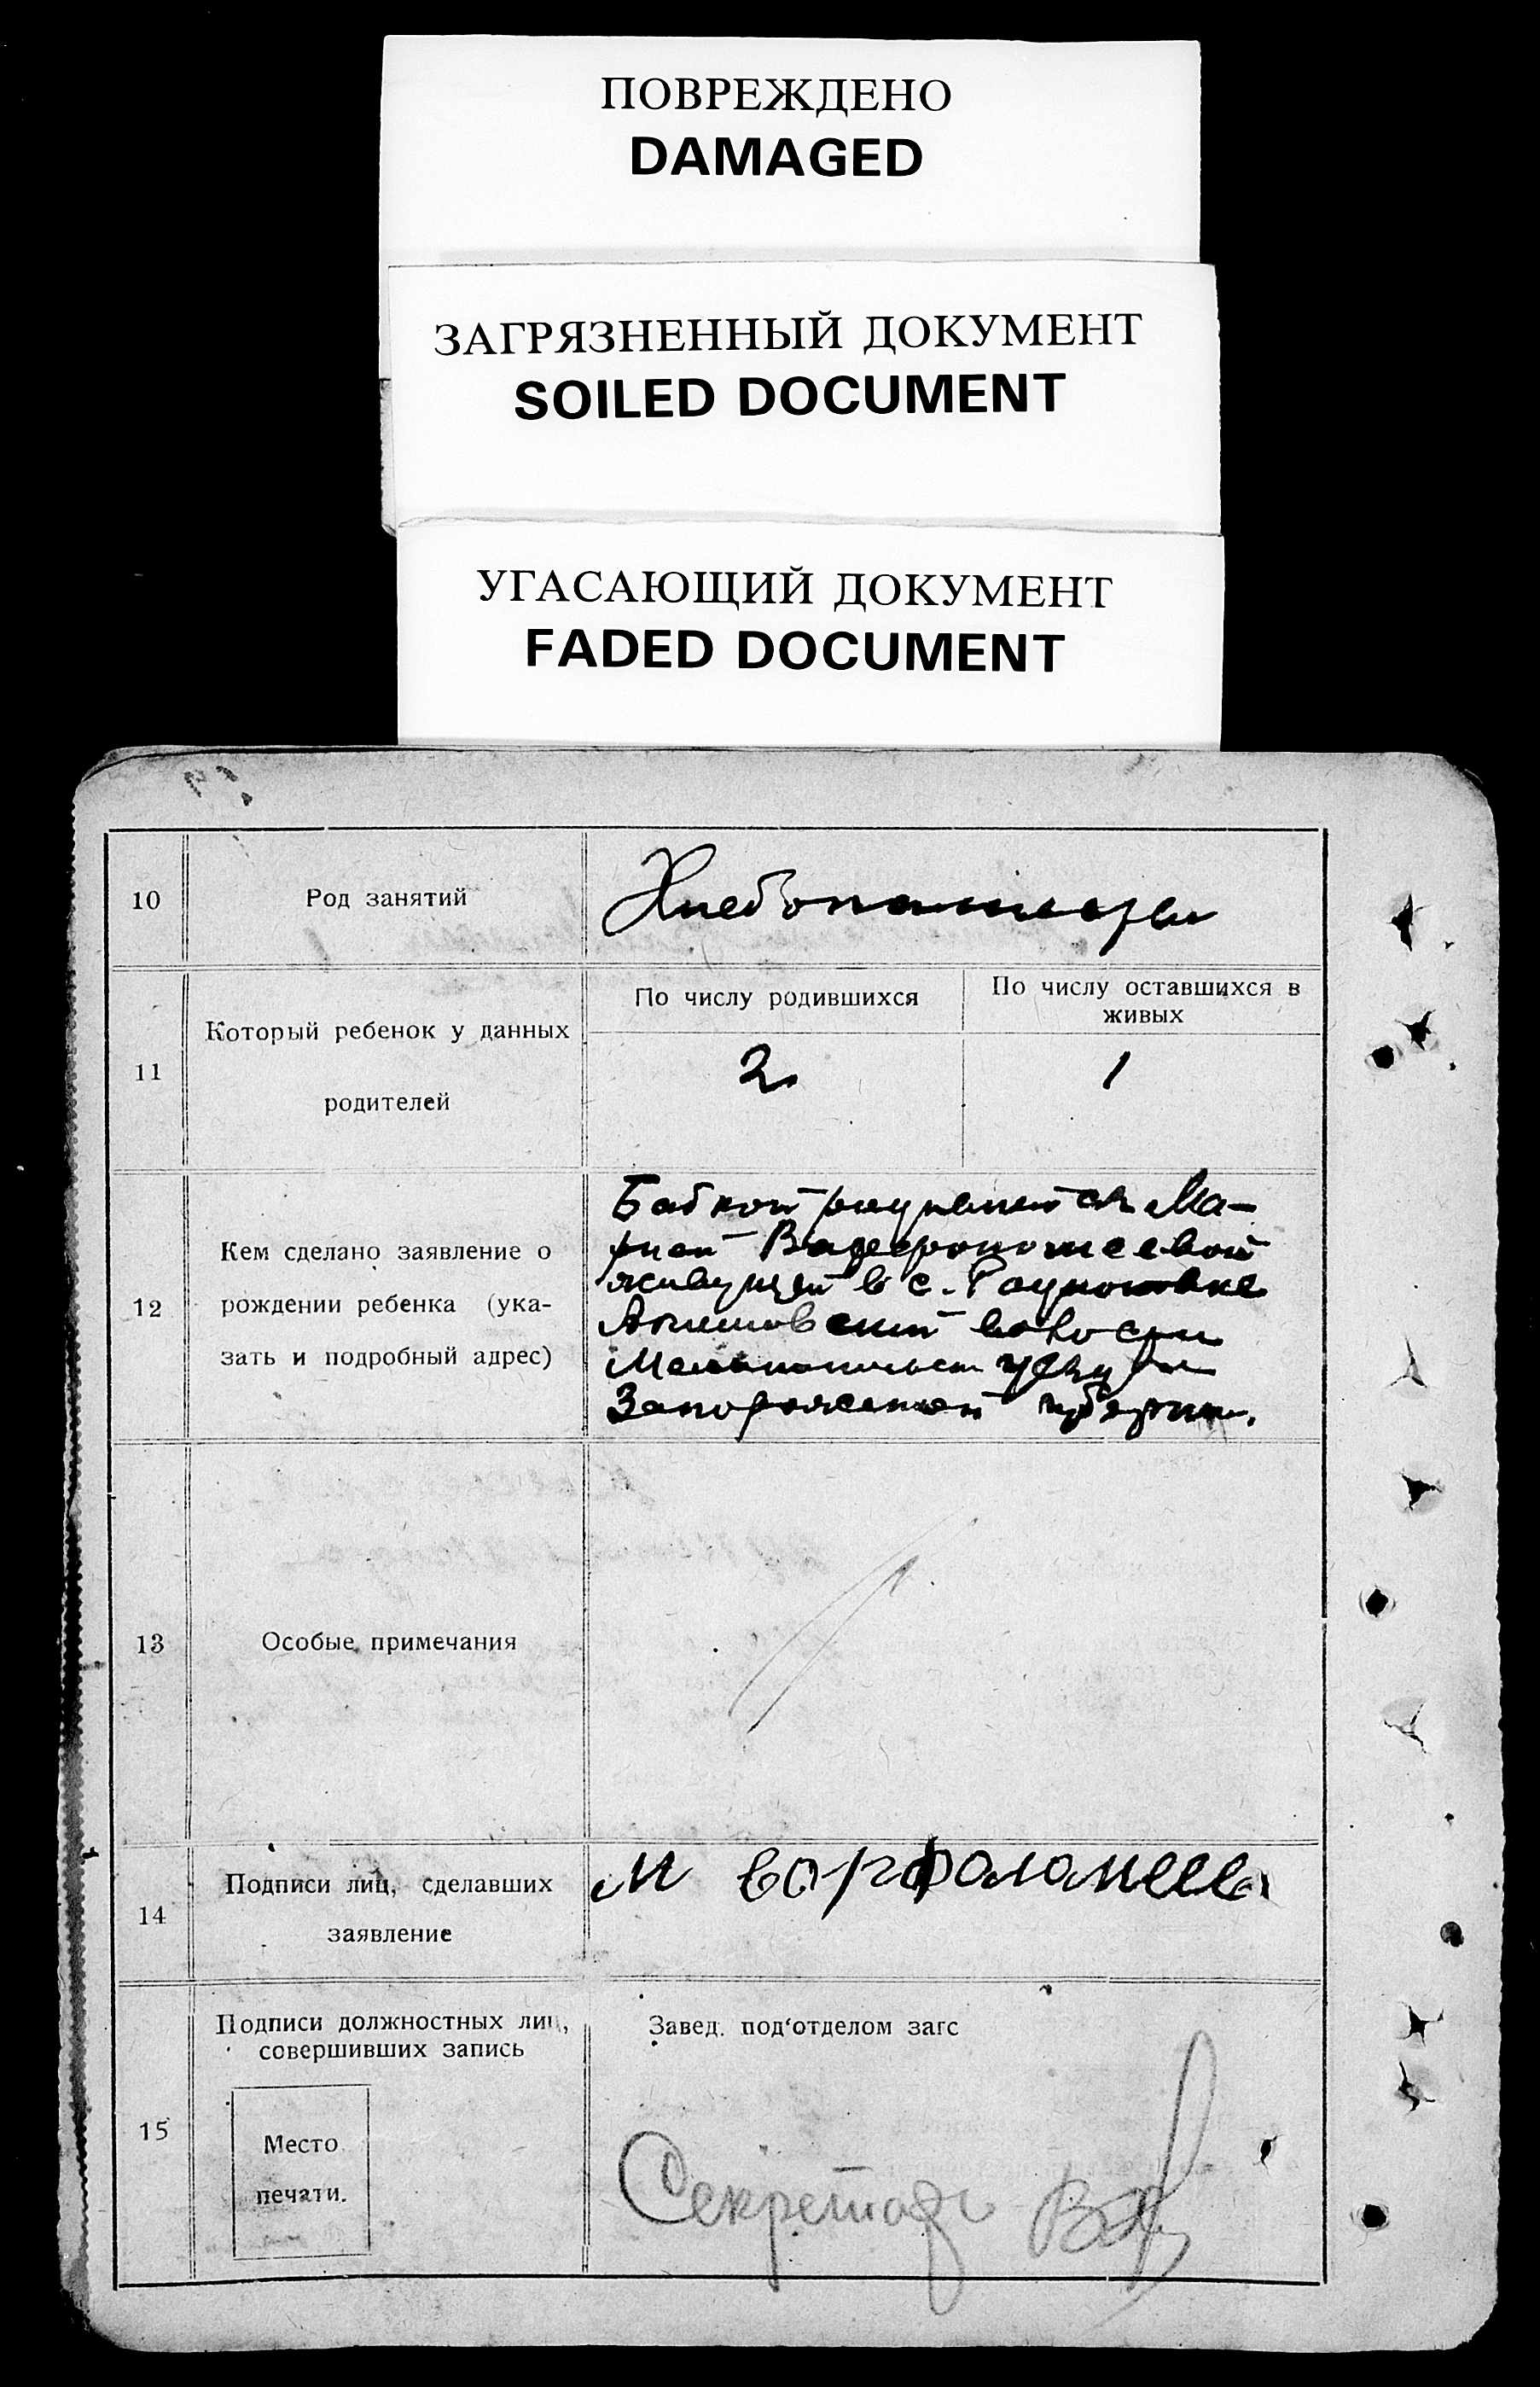 ПОВРЕЖДЕНО
DAMAGED
ЗАГРЯЗНЕННЫЙ ДОКУМЕНТ
SOILED DOCUMENT
УГАСАЮЩИЙ ДОКУМЕНТ
FADED DOCUMENT
10
Род занятий
Хлебопашцы
11
Который ребенок у данных
родителей
По числу родившихся
2
По числу оставшихся в
живых
1
12
Кем сделано заявление о
рождении ребенка (ука-
зать и подробный адрес)
Бабкой Ма-
рией
живущей в с.
волости
Мелитопольск уезда
Запорожской губернии.
13
Особые примечания
14
Подписи лиц, сделавших
заявление
М
15
Подписи должностных лиц,
совершивших запись
Место
печати.
Завед. под'отделом загс
Секретарь